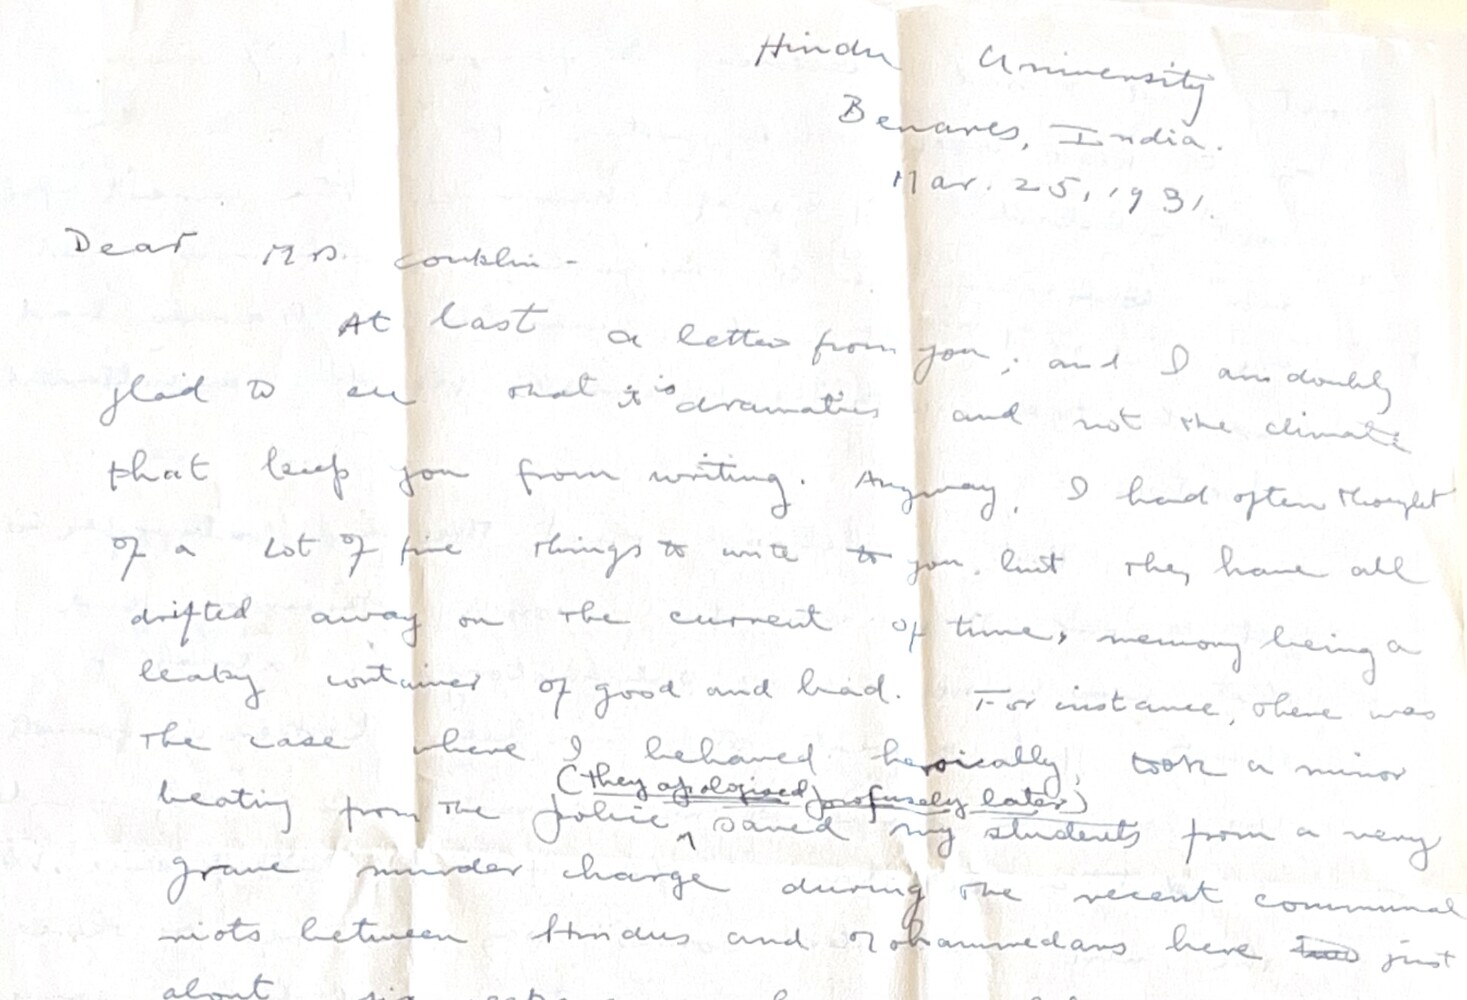 Hindu University
Benares, India.
Mar. 25, 1931.
Dear Mrs. Conklin -
At last a letter from you; and I am doubly
glad to see that it is dramatics and not the climate
that keep you from writing. Anyway, I had often thought
of a lot of fine things to write to you, but they have all
drifted away on the current of time, memory being a
leaky container of good and bad. For instance, there was
the case where I behaved heroically, took a minor
(they apologised profusely later)
beating from the police saved my students from a very
grave murder charge during the recent communal
riots between Hindus and Mohammedans here just
about